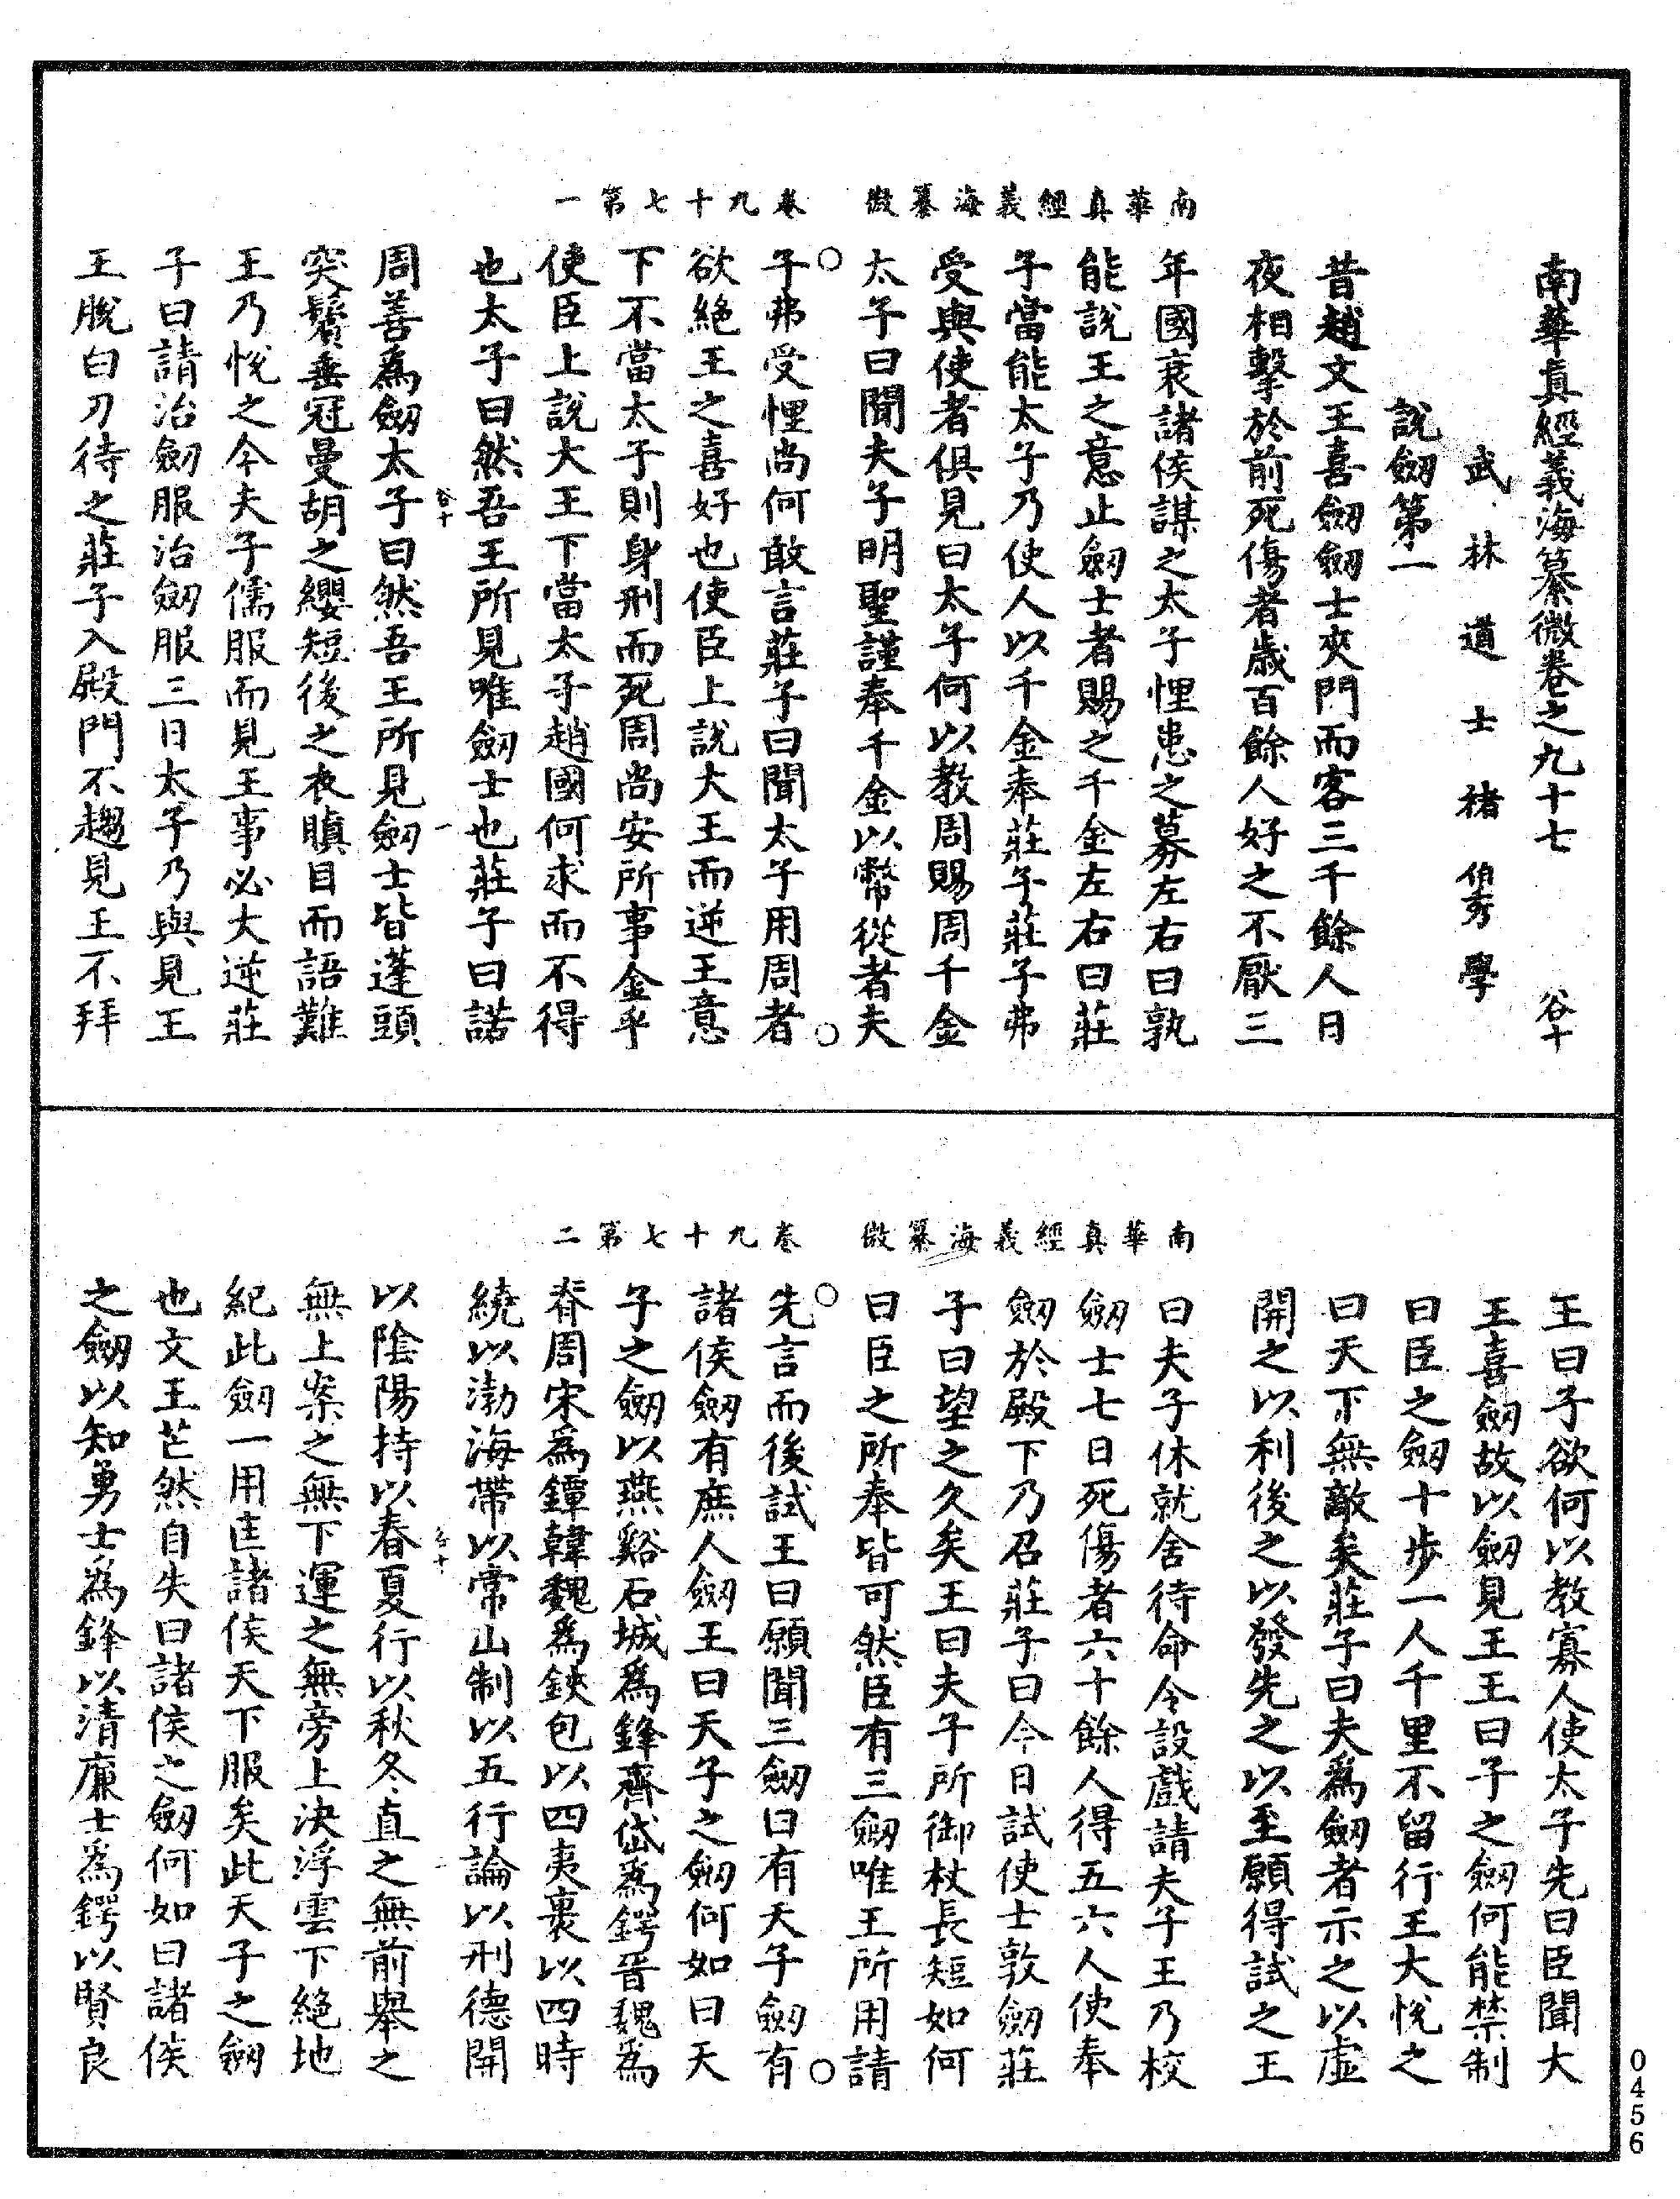 南華真經義海纂微卷之九十七 谷十
武林道士褚伯秀學
說劒第一
昔趙文王喜劒劒士夾門而客三千餘人日
夜相擊於前死傷者歲百餘人好之不厭三
年國衰諸侯謀之太子悝患之募左右曰孰
能說王之意止劒士者賜之千金左右曰莊
子當能太子乃使人以千金奉莊子莊子弗
受與使者俱見曰太子何以教周賜周千金
太子曰聞夫子明聖謹奉千金以幣從者夫
南華真經義海纂微 卷九十七第一
子弗受悝尚何敢言莊子曰聞太子用周者
欲絕王之喜好也使臣上說大王而逆王意
下不當太子則身刑而死周尚安所事金乎
使臣上說大王下當太子趙國何求而不得
也太子曰然吾王所見唯劒士也莊子曰諾
谷十 一
周善爲劒太子曰然吾王所見劒士皆蓬頭
突鬢垂冠曼胡之纓短後之衣瞋目而語難
王乃悅之今夫子儒服而見王事必大逆莊
子曰請治劒服治劒服三日太子乃與見王
王脫白刃待之莊子入殿門不趨見王不拜
王曰子欲何以教寡人使太子先曰臣聞大
王喜劒故以劒見王王曰子之劒何能禁制
曰臣之劒十步一人千里不留行王大悅之
曰天下無敵矣莊子曰夫爲劒者示之以虛
開之以利後之以發先之以至願得試之王
曰夫子休就舍待命令設戲請夫子王乃校
劒士七日死傷者六十餘人得五六人使奉
劒於殿下乃召莊子曰今日試使士敦劒莊
子曰望之久矣王曰夫子所御杖長短如何
曰臣之所奉皆可然臣有三劒唯王所用請
南華真經義海纂微 卷九十七第二
先言而後試王曰願聞三劒曰有天子劒有
諸侯劒有庶人劒王曰天子之劒何如曰天
子之劒以燕谿石城爲鋒齊岱爲鍔晉魏爲
脊周宋爲鐔韓魏爲鋏包以四夷裹以四時
繞以渤海帶以常山制以五行論以刑德開
谷十
以陰陽持以春夏行以秋冬直之無前舉之
無上案之無下運之無旁上決浮雲下絕地
紀此劒一用匡諸侯天下服矣此天子之劒
也文王芒然自失曰諸侯之劒何如曰諸侯
之劒以知勇士爲鋒以清廉士爲鍔以賢良
0456